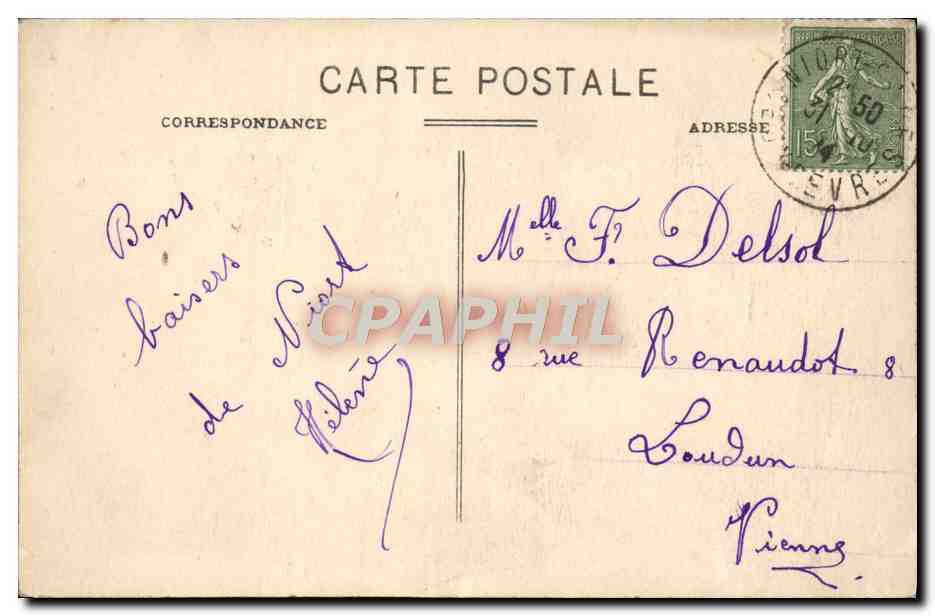 CARTE POSTALE
CORRESPONDANCE
ADRESSE
REPUBLIQUE FRANÇAISE
15c
NIORT
2* 50
31
14
SEVRES
Bons
baisers
de Niort
Hélène
Melle F. Delsol
8 rue Renaudot 8
Loudun
Vienne
CPAPHIL